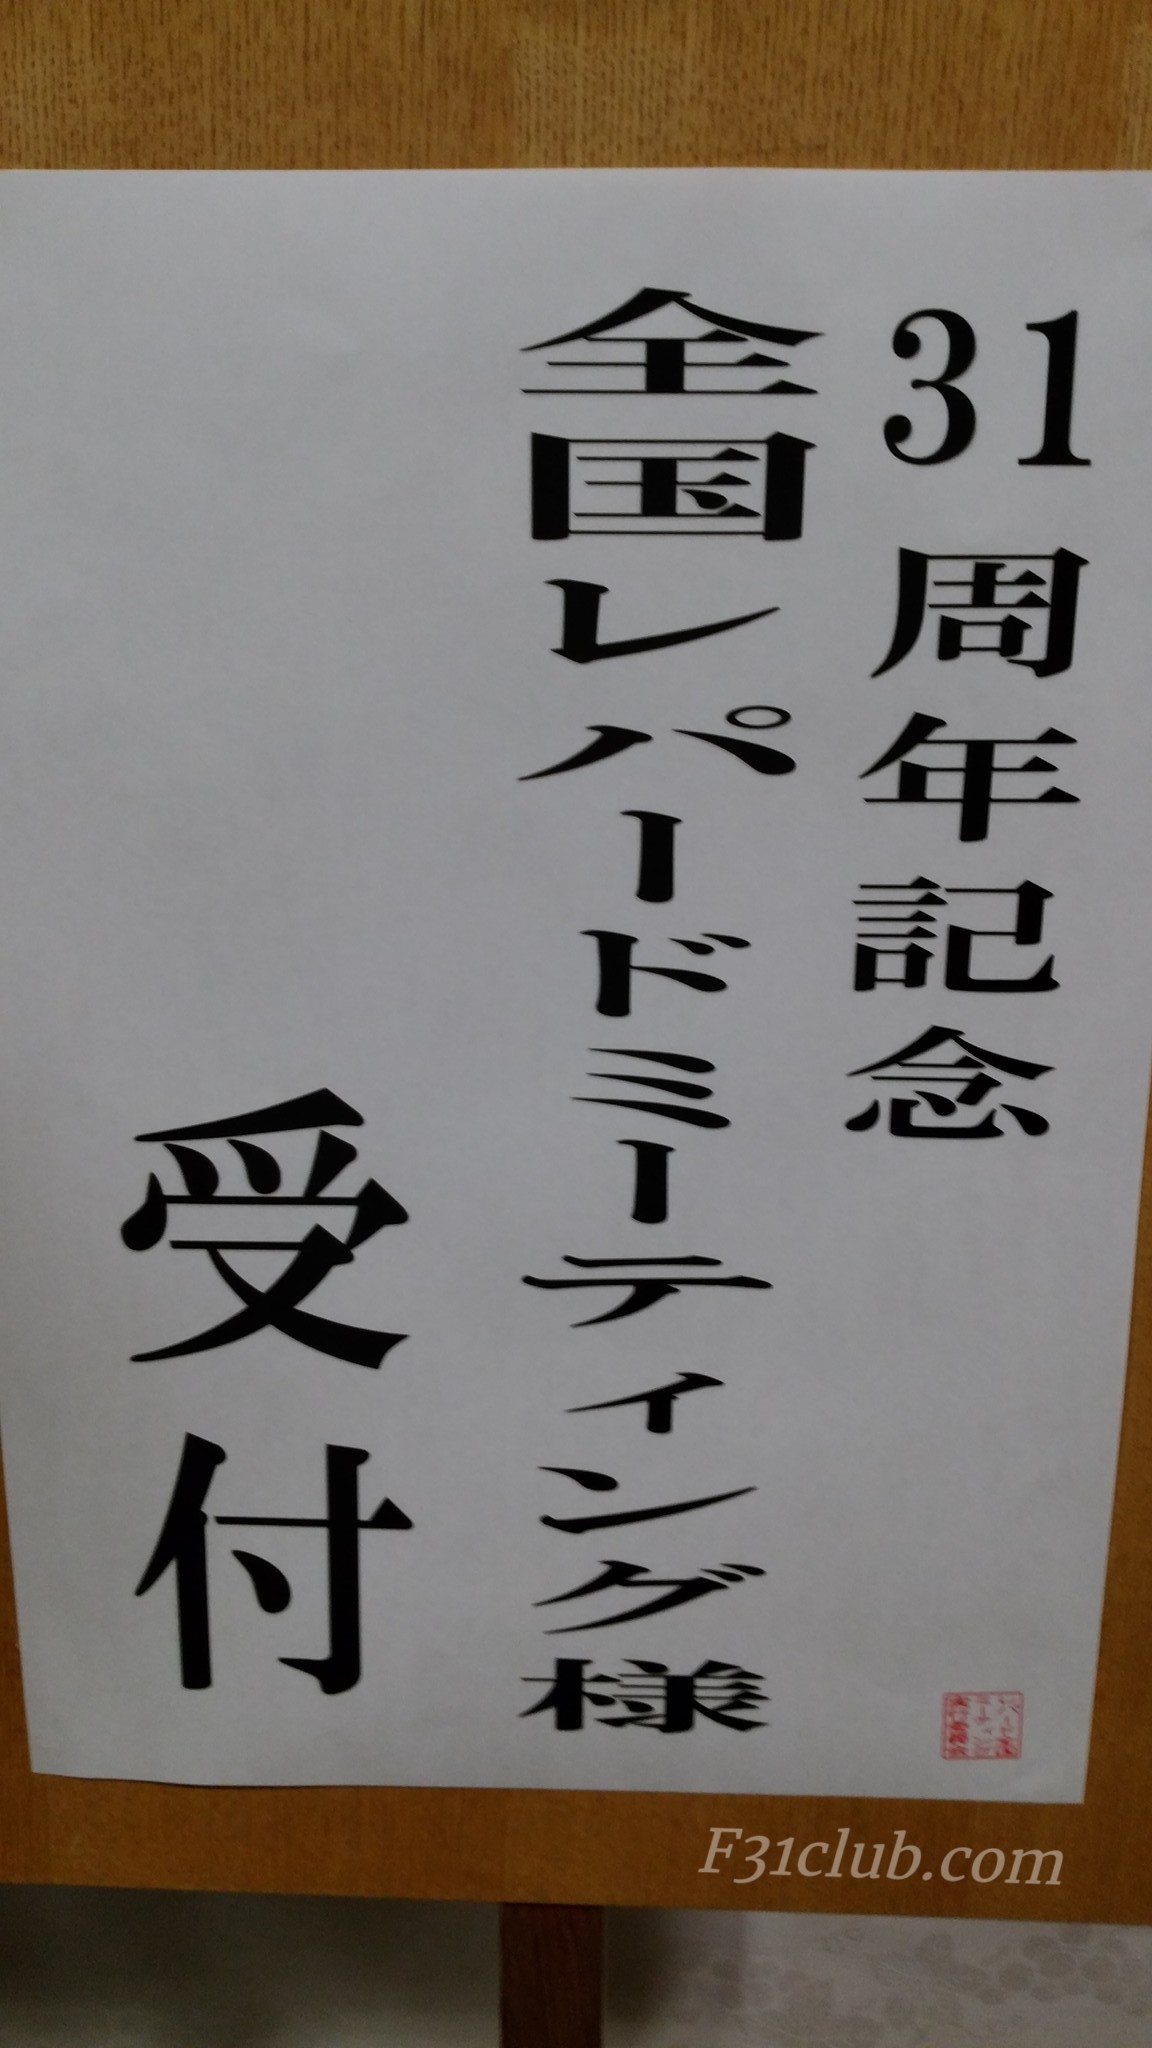 31周年記念
全国レパードミーティング様
受付
F31club.com